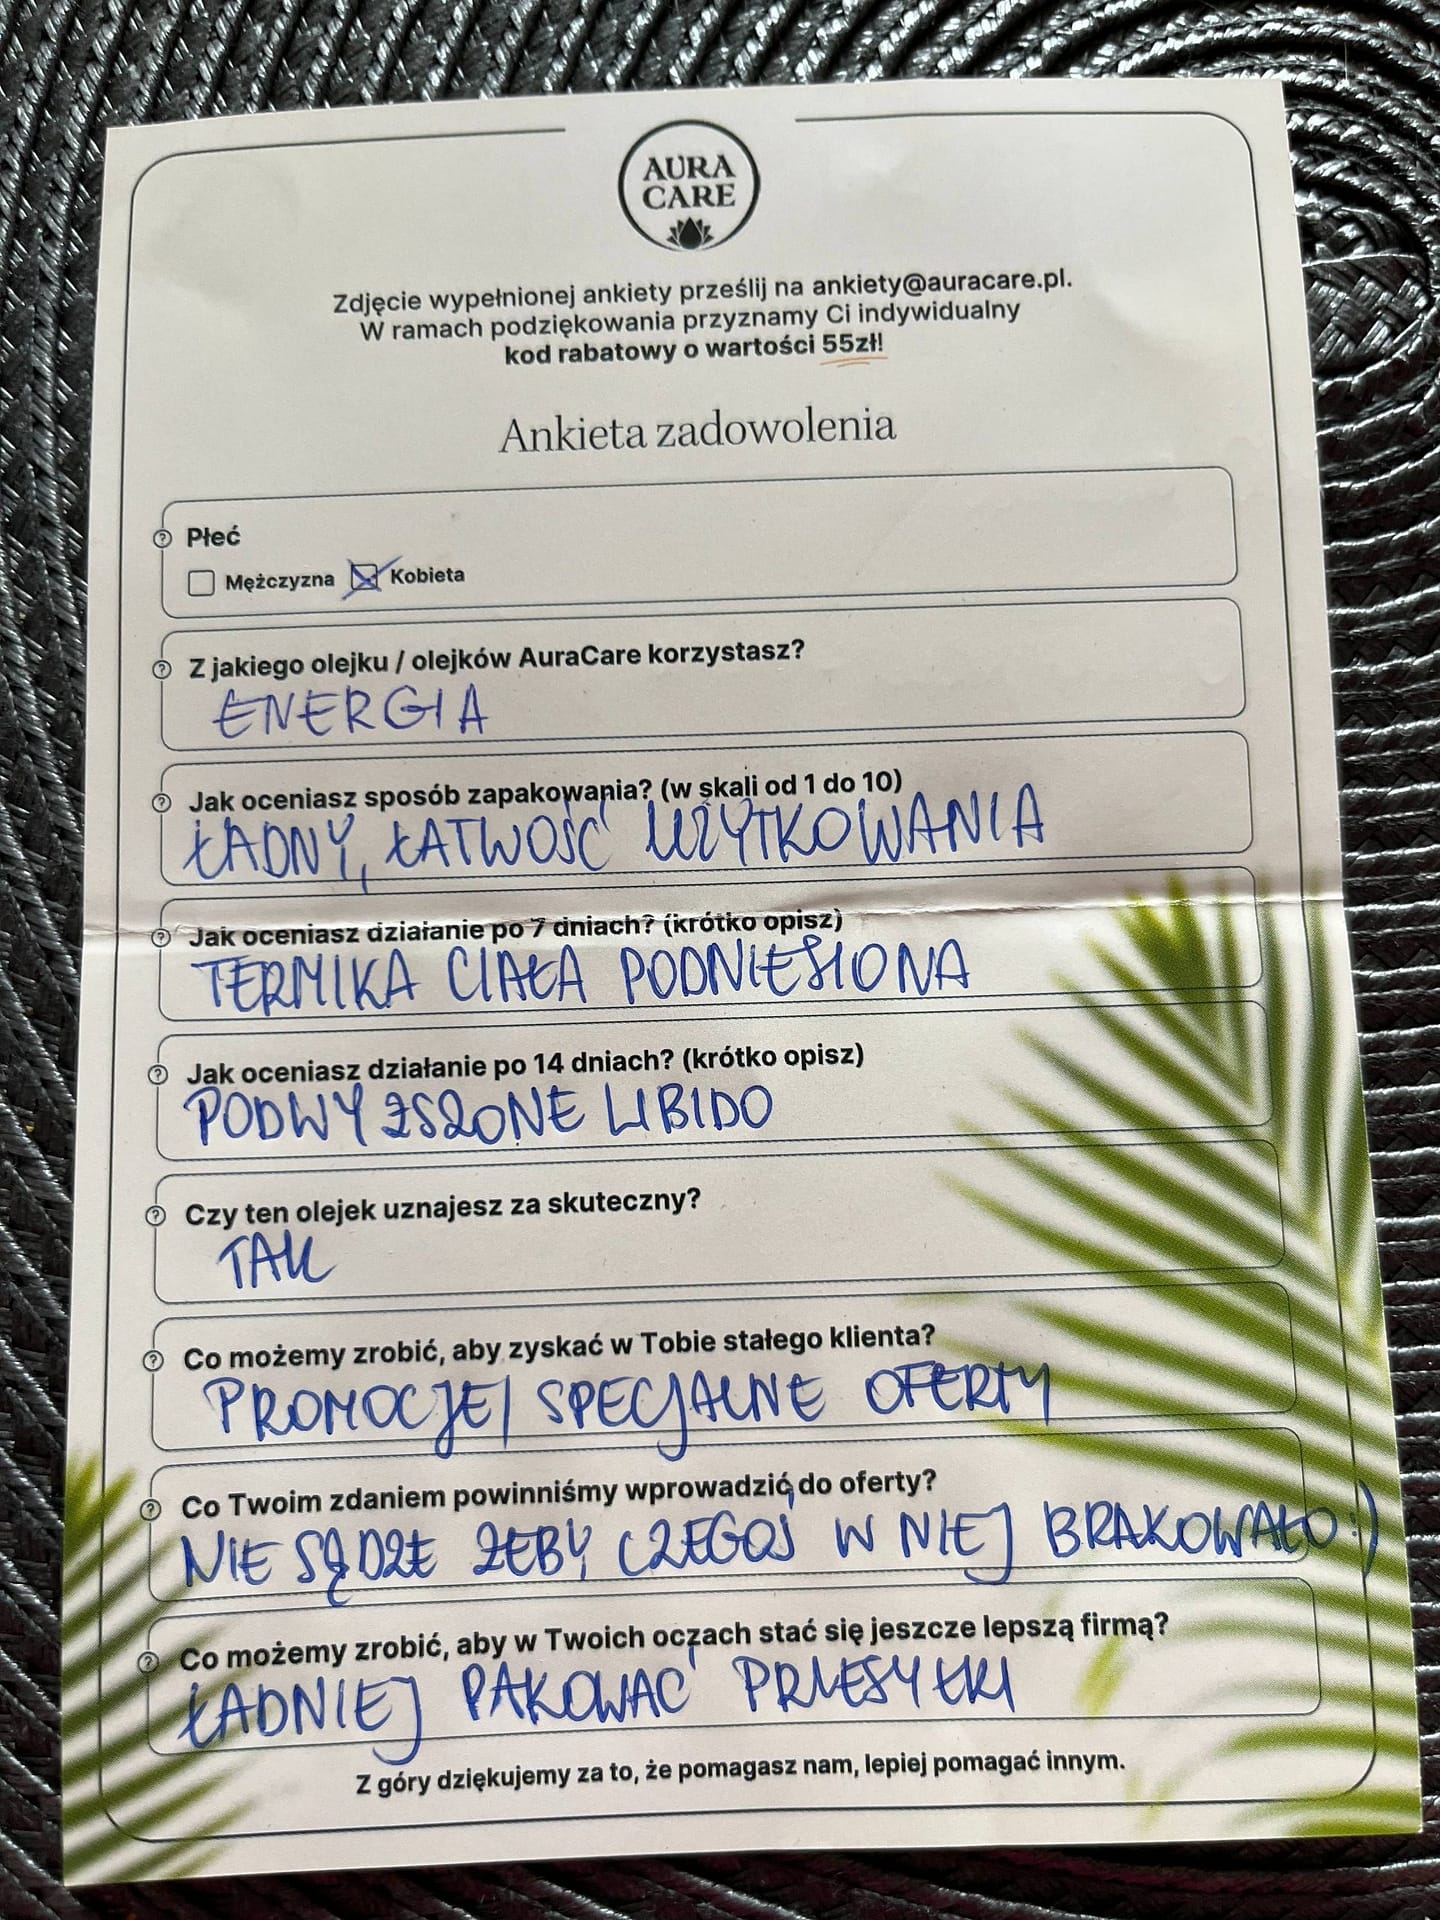 AURA
CARE
Zdjęcie wypełnionej ankiety prześlij na ankiety@auracare.pl.
W ramach podziękowania przyznamy Ci indywidualny
kod rabatowy o wartości 55zł!
Ankieta zadowolenia
Płeć
Mężczyzna Kobieta
Z jakiego olejku / olejków AuraCare korzystasz?
ENERGIA
Jak oceniasz sposób zapakowania? (w skali od 1 do 10)
ŁADNY, ŁATWOŚĆ UŻYTKOWANIA
Jak oceniasz działanie po 7 dniach? (krótko opisz)
TERMIKA CIAŁA PODNIESIONA
Jak oceniasz działanie po 14 dniach? (krótko opisz)
PODWYŻSZONE LIBIDO
Czy ten olejek uznajesz za skuteczny?
TAK
Co możemy zrobić, aby zyskać w Tobie stałego klienta?
PROMOCJE/ SPECJALNE OFERTY
Co Twoim zdaniem powinniśmy wprowadzić do oferty?
NIE SĄDZĘ ŻEBY CZEGOŚ W NIEJ BRAKOWAŁO :)
Co możemy zrobić, aby w Twoich oczach stać się jeszcze lepszą firmą?
ŁADNIEJ PAKOWAĆ PRZESYŁKI
Z góry dziękujemy za to, że pomagasz nam, lepiej pomagać innym.